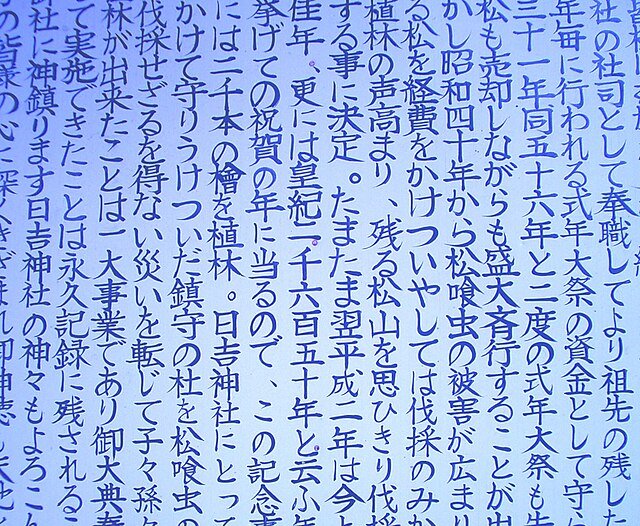 社の社司として奉職してより祖先の残した
年毎に行われる式年大祭の資金として守ら
三十一年同五十六年と二度の式年大祭も
松も売却しながらも盛大斉行することが出
かし昭和四十年から松喰虫の被害が広まり
る松を経費をかけついやしては伐採のみか
植林の声高まり、残る松山を思ひきり伐採
する事に決定。たまたま翌平成二年は今
佳年、更には皇紀二千六百五十年と云ふ年
挙げての祝賀の年に当るので、この記念事
には二千本の檜を植林。日吉神社にとって
かけて守りうけついだ鎮守の杜を松喰虫の
伐採せざるを得ない災いを転じて子々孫々
林が出来たことは一大事業であり御大典奉
て実施できたことは永久記録に残されるこ
社に神鎮ります日吉神社の神々もよろこ
の皆様の心に深くきざまれ御神徳